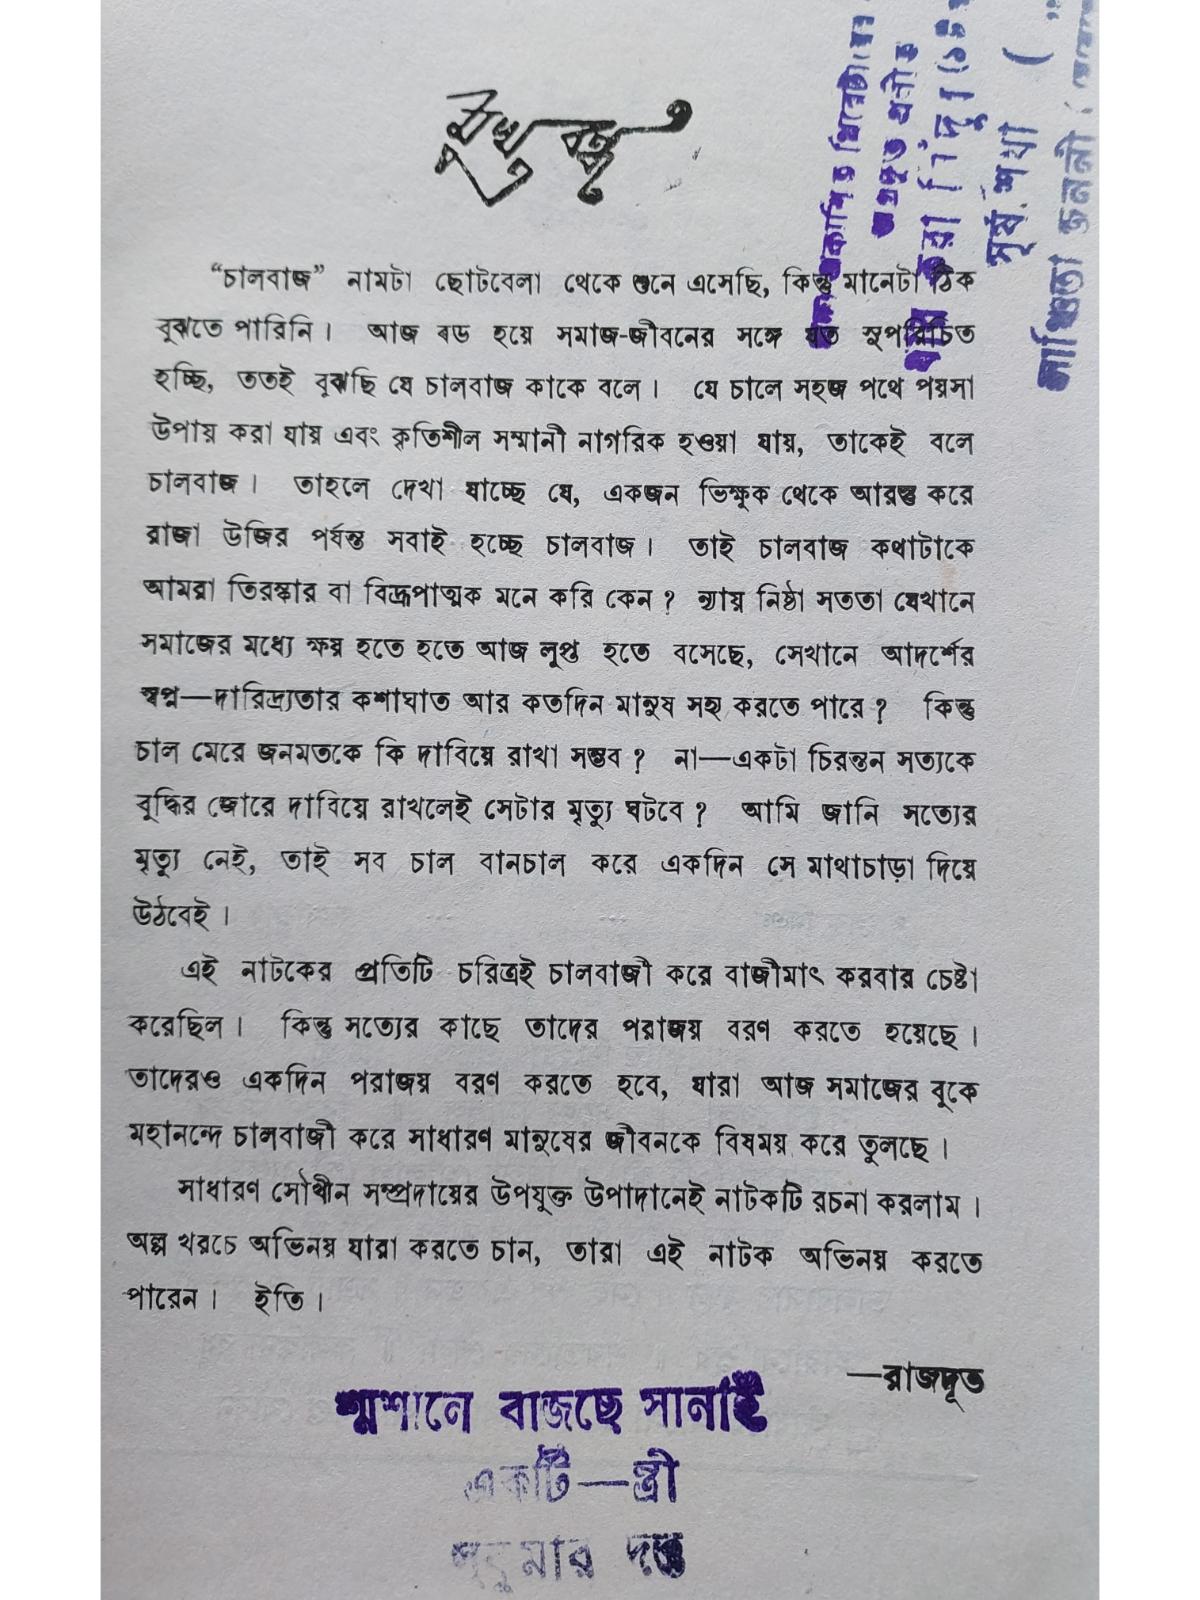 মুখবন্ধ
“চালবাজ” নামটা ছোটবেলা থেকে শুনে এসেছি, কিন্তু মানেটা ঠিক
বুঝতে পারিনি। আজ বড হয়ে সমাজ-জীবনের সঙ্গে যত সুপরিচিত
হচ্ছি, ততই বুঝছি যে চালবাজ কাকে বলে। যে চালে সহজ পথে পয়সা
উপায় করা যায় এবং কৃতিশীল সম্মানী নাগরিক হওয়া যায়, তাকেই বলে
চালবাজ। তাহলে দেখা যাচ্ছে যে, একজন ভিক্ষুক থেকে আরম্ভ করে
রাজা উজির পর্যন্ত সবাই হচ্ছে চালবাজ। তাই চালবাজ কথাটাকে
আমরা তিরস্কার বা বিদ্রূপাত্মক মনে করি কেন? ন্যায় নিষ্ঠা সততা যেখানে
সমাজের মধ্যে ক্ষয় হতে হতে আজ লুপ্ত হতে বসেছে, সেখানে আদর্শের
স্বপ্ন—দারিদ্র্যতার কশাঘাত আর কতদিন মানুষ সহ্য করতে পারে? কিন্তু
চাল মেরে জনমতকে কি দাবিয়ে রাখা সম্ভব? না—একটা চিরন্তন সত্যকে
বুদ্ধির জোরে দাবিয়ে রাখলেই সেটার মৃত্যু ঘটবে? আমি জানি সত্যের
মৃত্যু নেই, তাই সব চাল বানচাল করে একদিন সে মাথাচাড়া দিয়ে
উঠবেই।
এই নাটকের প্রতিটি চরিত্রই চালবাজী করে বাজীমাৎ করবার চেষ্টা
করেছিল। কিন্তু সত্যের কাছে তাদের পরাজয় বরণ করতে হয়েছে।
তাদেরও একদিন পরাজয় বরণ করতে হবে, যারা আজ সমাজের বুকে
মহানন্দে চালবাজী করে সাধারণ মানুষের জীবনকে বিষময় করে তুলছে।
সাধারণ সৌখীন সম্প্রদায়ের উপযুক্ত উপাদানেই নাটকটি রচনা করলাম।
অল্প খরচে অভিনয় যারা করতে চান, তারা এই নাটক অভিনয় করতে
পারেন। ইতি।
—রাজদূত
শ্মশানে বাজছে সানাই
একটি—স্ত্রী
দত্ত